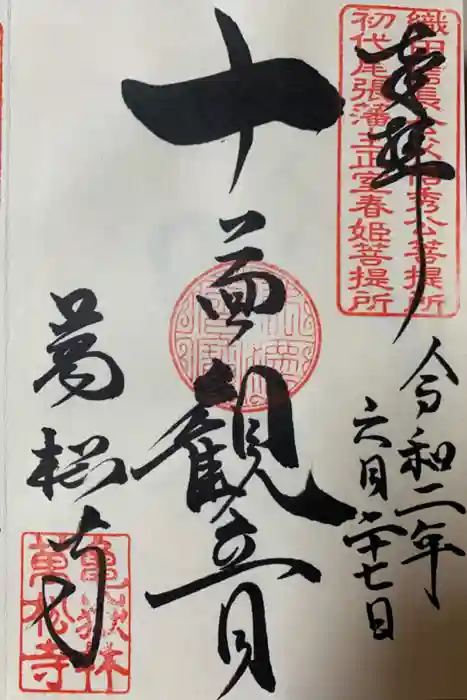 奉拝
織田信長公父信秀公菩提所
初代尾張藩主正室春姫菩提所
令和二年
六月二十七日
十一面観音
萬松寺
亀嶽林
萬松寺